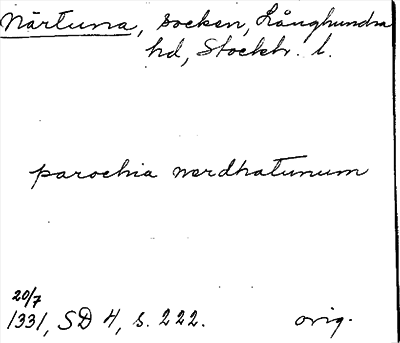 Närtuna, socken, Långhundra
hd, Stockh. l.
parochia nerdhatunum
20/7
1331, SD 4, s. 222. orig.